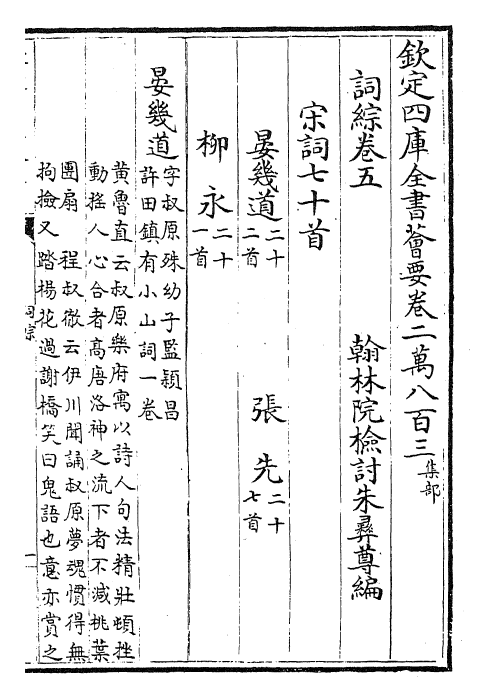 欽定四庫全書薈要卷二萬八百三集部
詞綜卷五
翰林院檢討朱彝尊編
宋詞七十首
晏幾道二十二首
張先二十七首
柳永二十一首
晏幾道字叔原殊幼子監潁昌許田鎮有小山詞一卷
黄魯直云叔原樂府寓以詩人句法精壯頓挫
動搖人心合者髙唐洛神之流下者不減桃葉
團扇 程叔微云伊川聞誦叔原夢魂慣得無
拘檢又踏楊花過謝橋笑曰鬼語也意亦賞之
詞綜
一